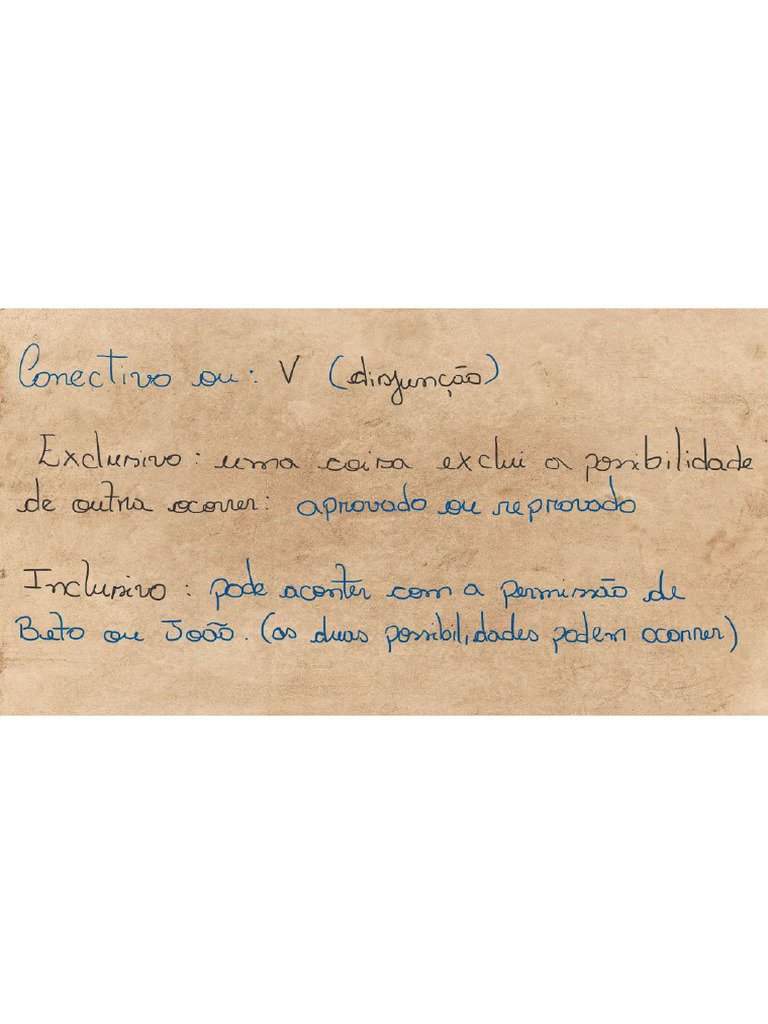 Conectivo ou: V (disjunção)
Exclusivo: uma coisa exclui a possibilidade
de outra ocorrer: aprovado ou reprovado
Inclusivo: pode aconter com a permissão de
Beto ou João. (as duas possibilidades podem ocorrer)